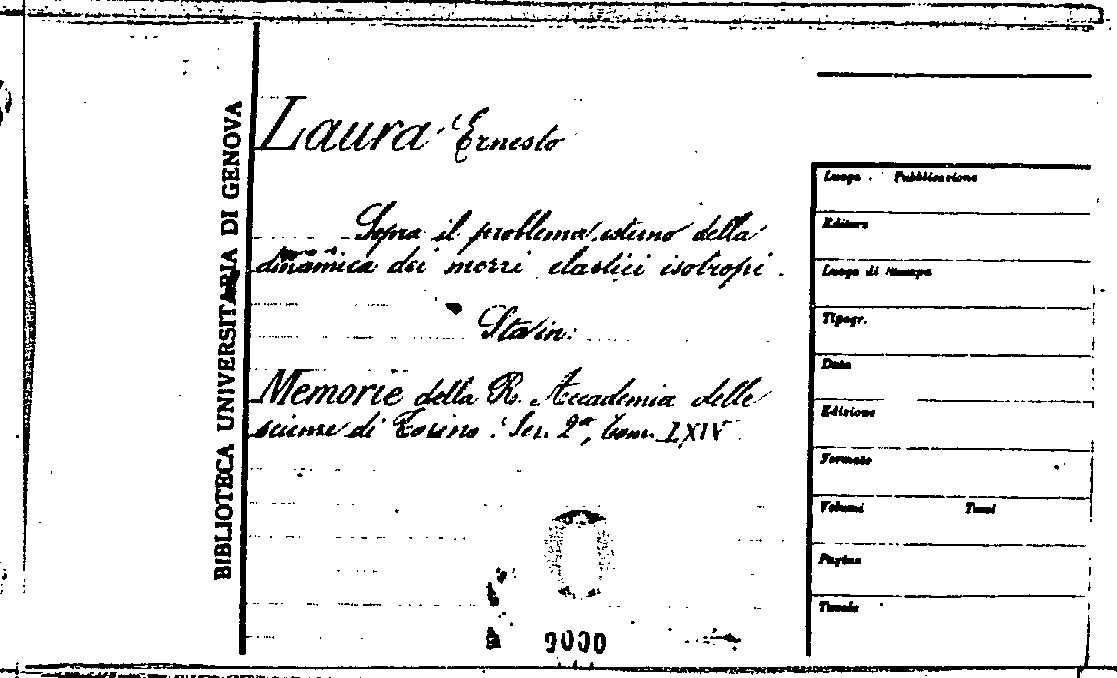 BIBLIOTECA UNIVERSITARIA DI GENOVA
Laura Ernesto
Sopra il problema esterno della
dinamica dei mezzi elastici isotropi.
Sta in:
Memorie della R. Accademia delle
scienze di Torino. Ser. 2ª, Tom. LXIV
0000
Luogo Pubblicazione
Editore
Luogo di Stampa
Tipogr.
Data
Edizione
Formato
Volumi Tomi
Pagine
Tavole